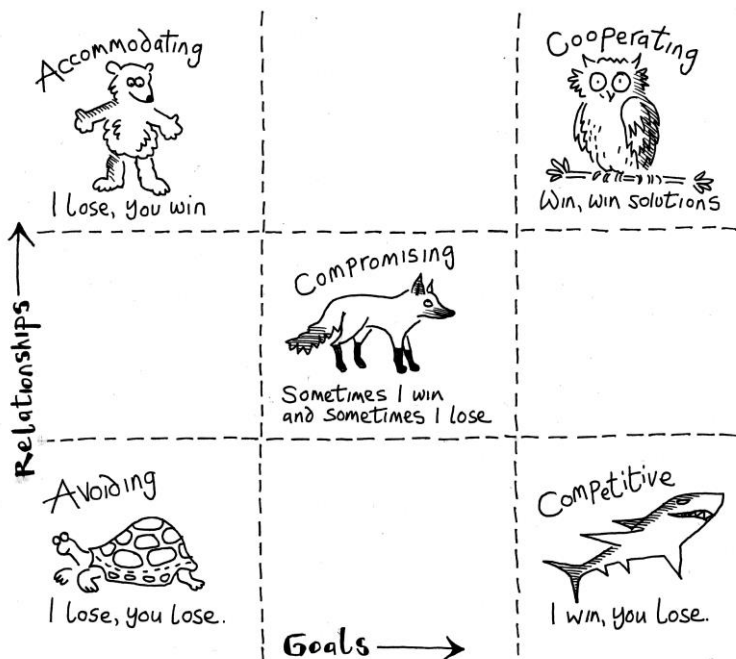 Accommodating
I lose, you win
Cooperating
Win, win solutions
Compromising
Sometimes I win
and sometimes I lose
Relationships
Avoiding
I lose, you lose.
Competitive
I win, you lose.
Goals